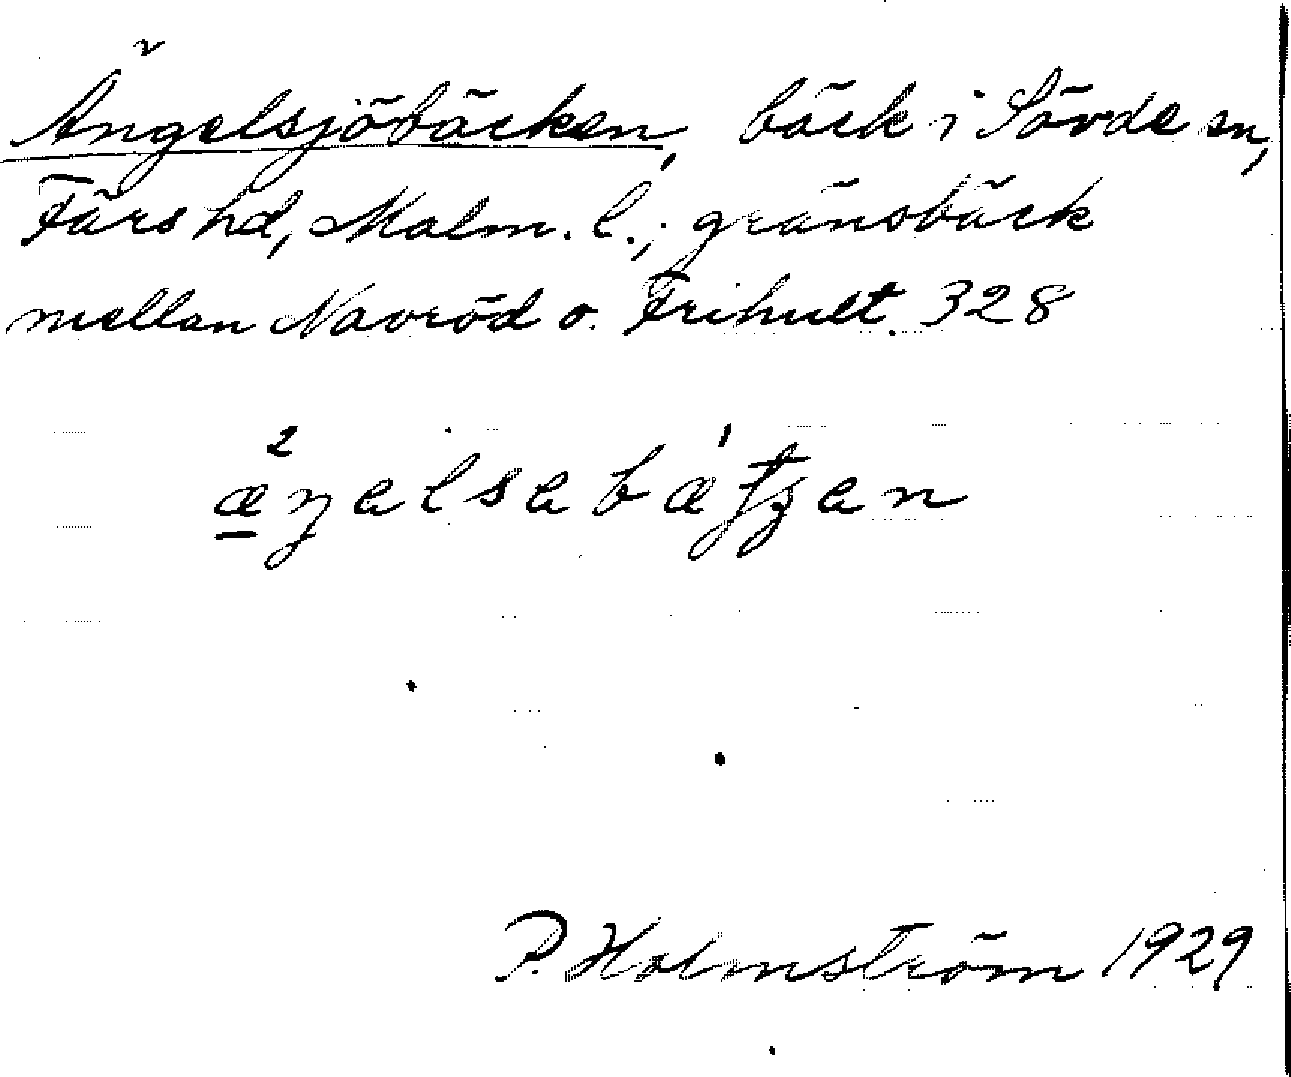 Ängelsjöbäcken, bäck i Sövde sn,
Färs hd, Malm. l.; gränsbäck
mellan Navröd o. Frihult. 328
P. Holmström 1929